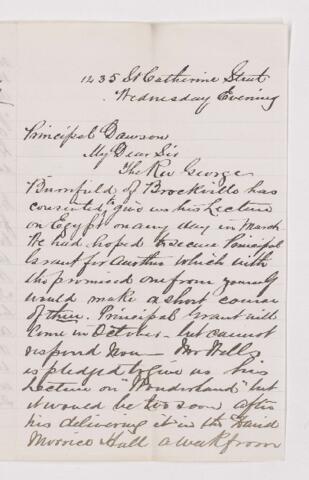 1235 St Catherine Street
Wednesday Evening
Principal Dawson
My Dear Sir
The Rev George
Burnfield of Brockville has
consented to give us his Lecture
on Egypt on any day in March
We had hoped to secure Principal
Grant for another which with
the promised one from yourself
would make a short course
of three. Principal Grant will
come in October - but cannot
respond now - Mr Wells
is pledged to give us his
Lecture on "Wonderland" but
it would be too soon after
his delivering it in the David
Morrice Hall a week from